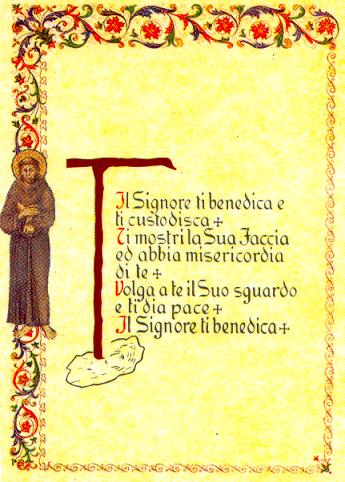 Il Signore ti benedica e
ti custodisca +
Ti mostri la Sua Faccia
ed abbia misericordia
di te +
Volga a te il Suo sguardo
e ti dia pace +
Il Signore ti benedica +